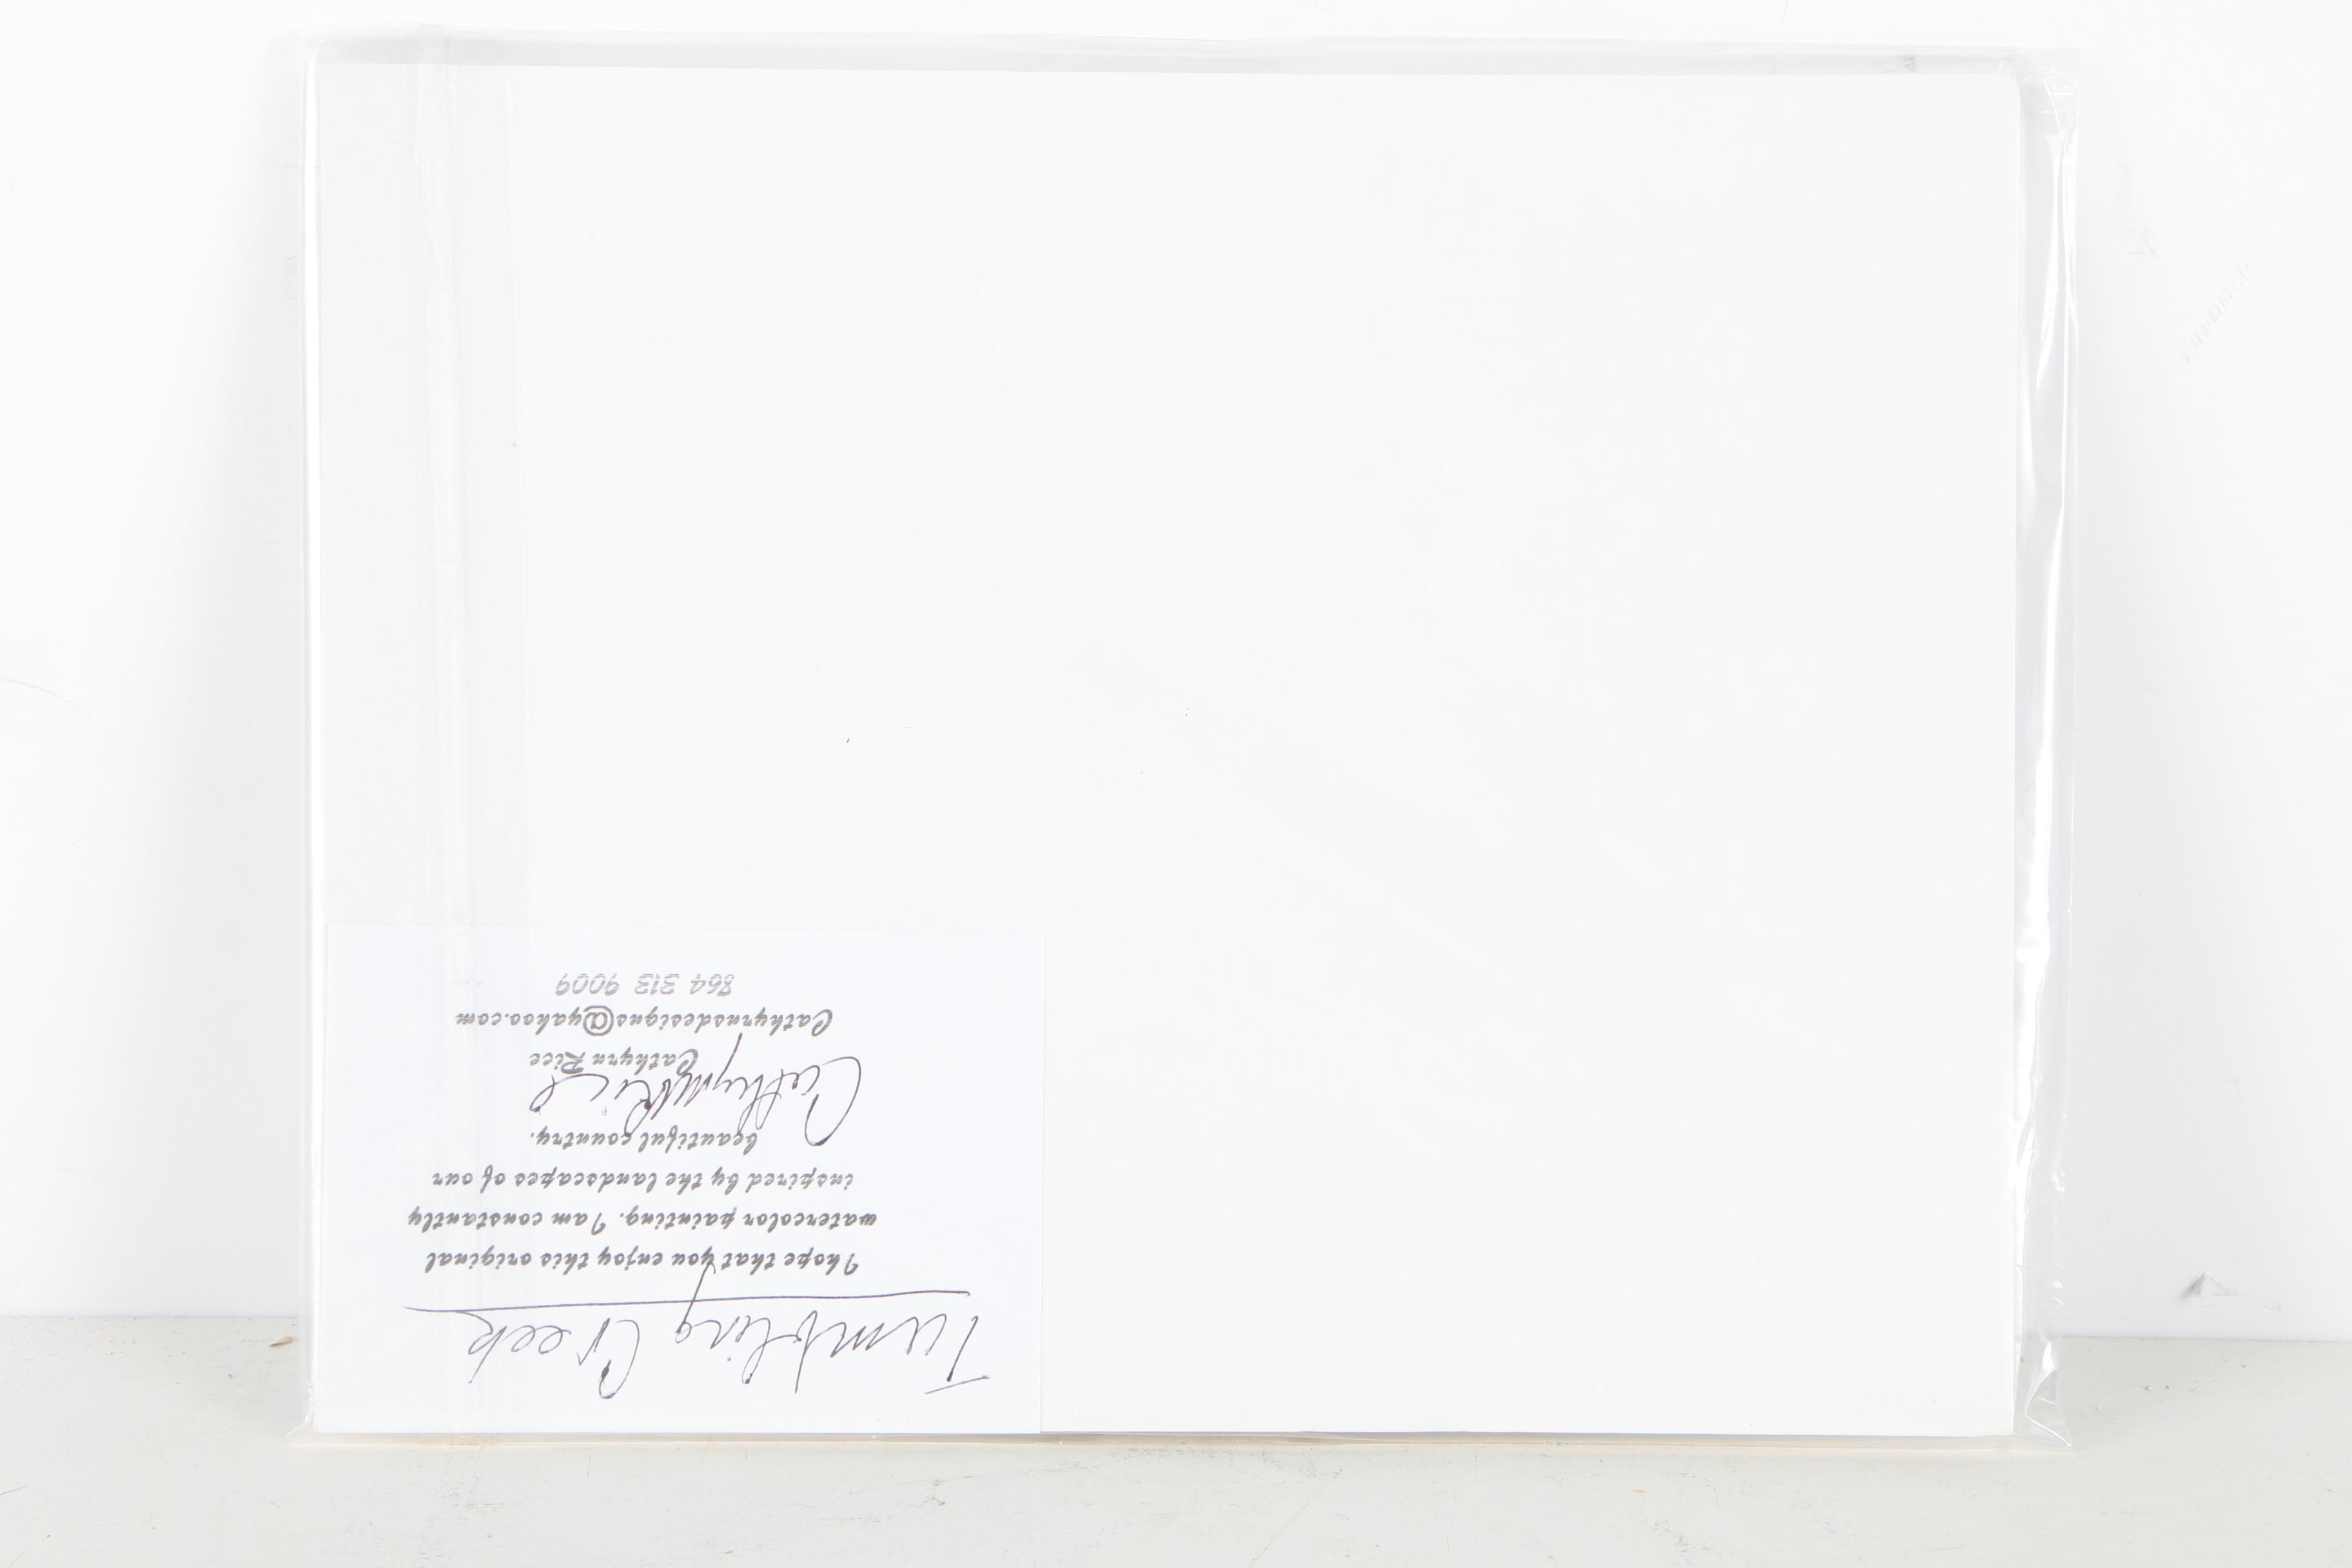 Tumbling Creek
I hope that you enjoy this original
watercolor painting. I am constantly
inspired by the landscapes of our
beautiful country.
Cathryn Rice
Cathyrn Rice
Cathyrnsdesigns@yahoo.com
864 313 9009